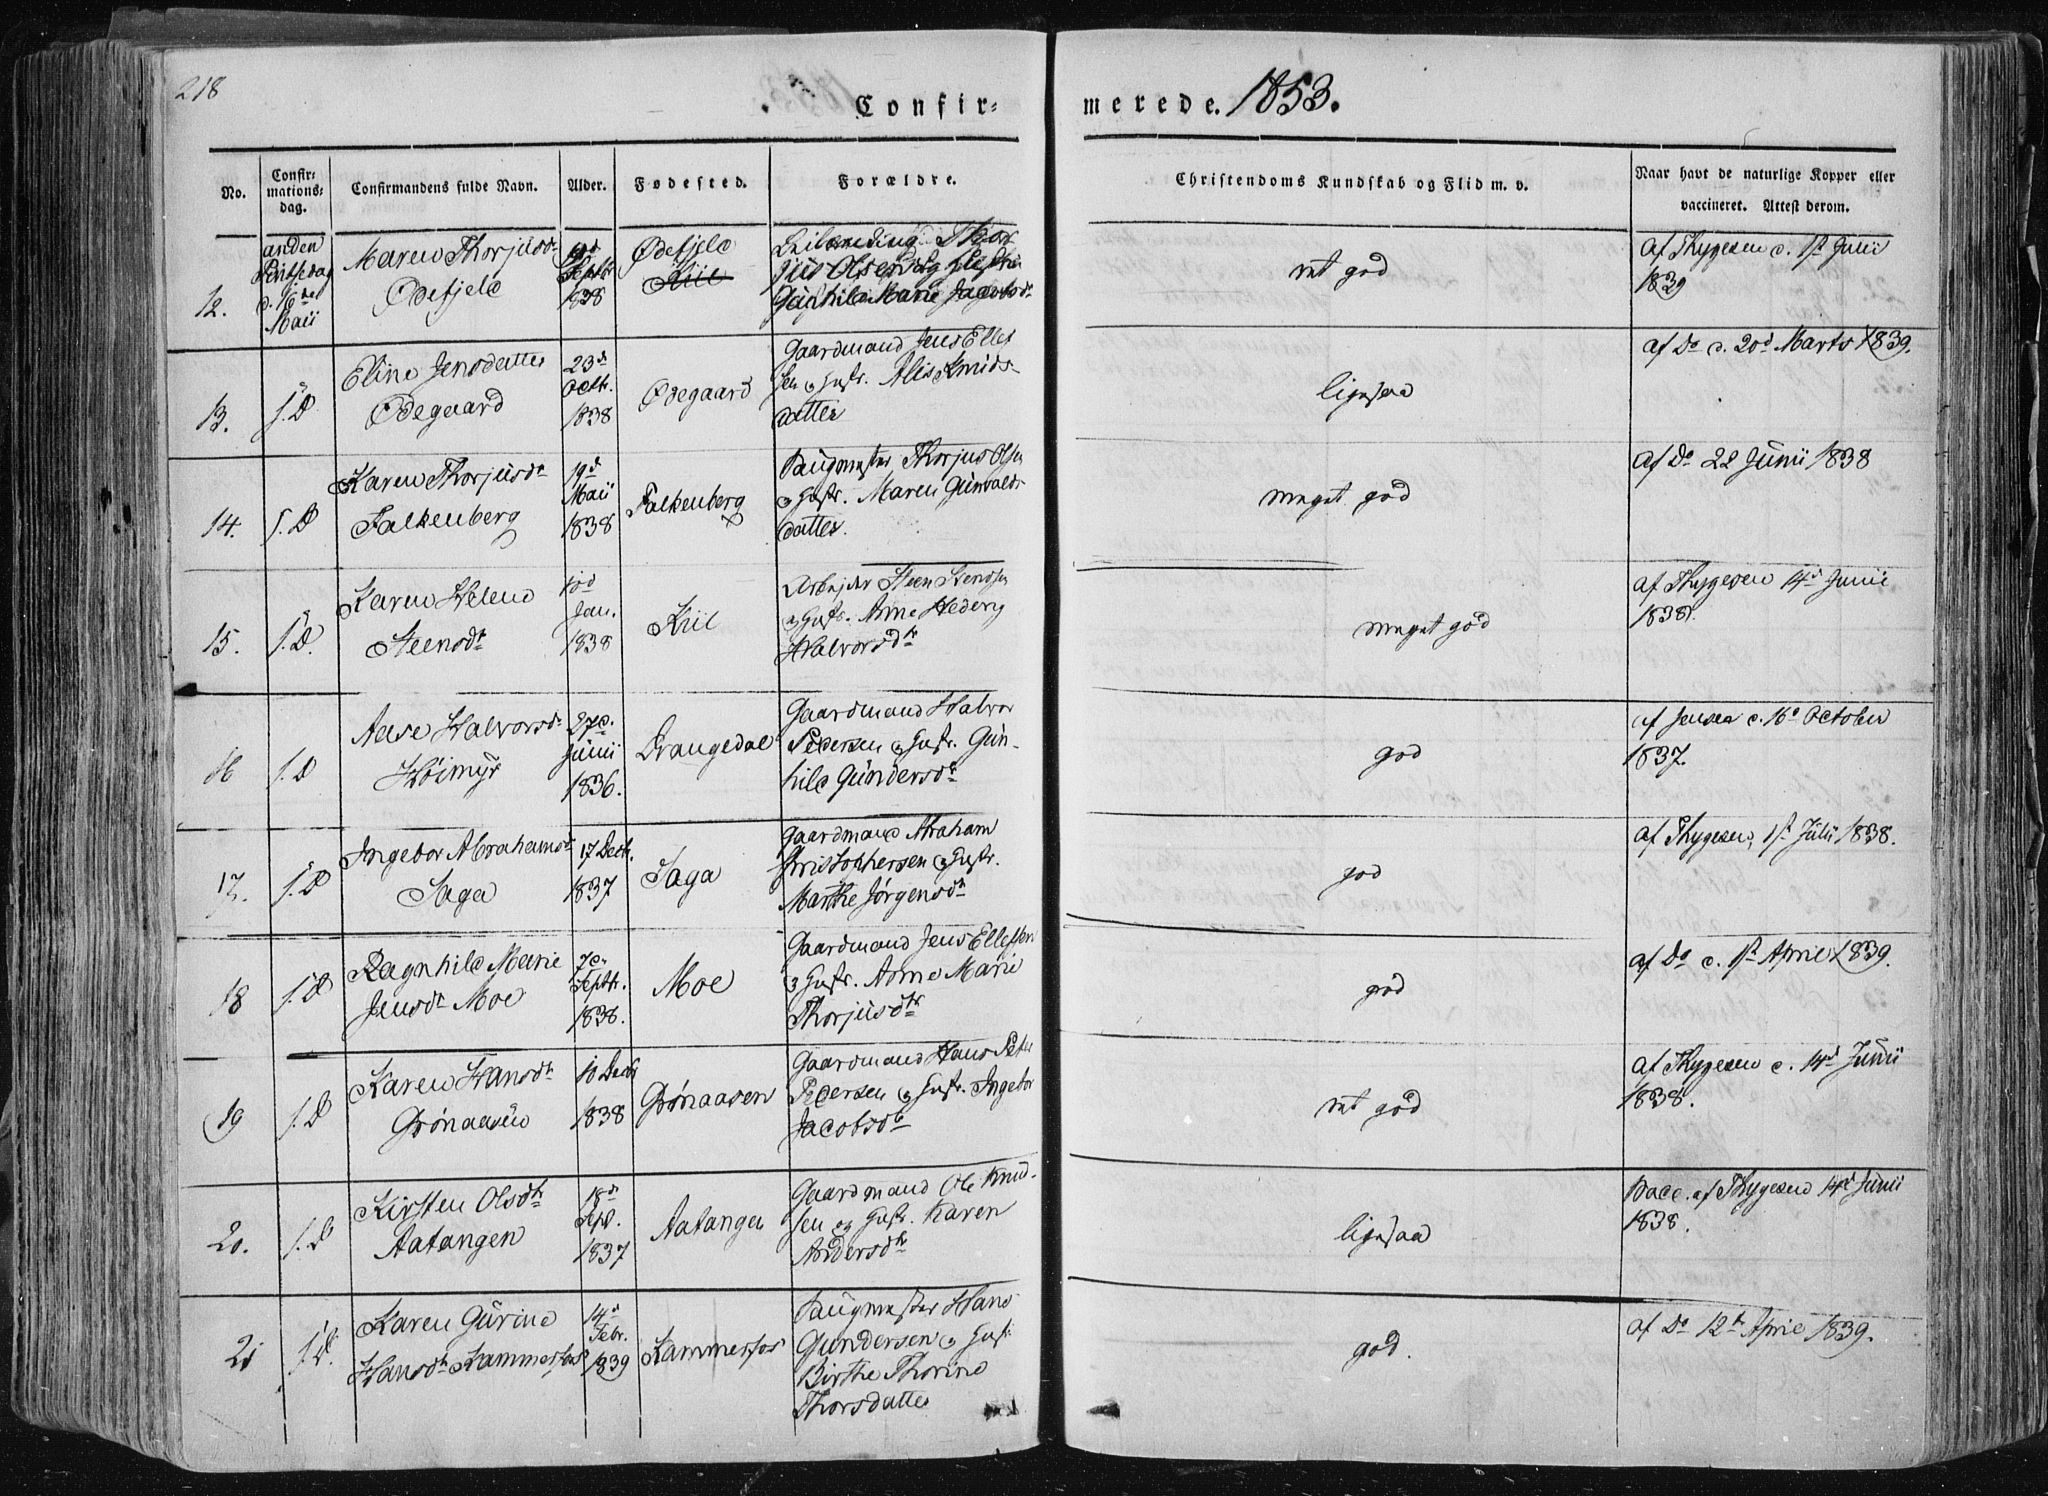 218
Confir-
merede. 1853.
No.
Confir-
mations-
dag.
Confirmandens fulde Navn.
Alder.
Fødested.
Forældre.
Christendoms Kundskab og Flid m. v.
Naar havt de naturlige Kopper eller
vaccineret. Attest derom.
12.
anden
Pintsedag
d. 16de
Maii
Maren Thorjusdr
Ødefjeld
Septbr
1838
Ødefjeld
Kiil
Thor
jus Olsen og
Gunhild Marie Jacobsdr
ret god
af Thygesen d. 1st Julii
1839
13.
s. D
Eline Jensdatter
Ødegaard
23d
Octbr.
1838
Ødegaard
Gaardmand Jens Ellef
sen og Hustr. Alis Knuds-
datter
ligesaa
af Do d. 20d Marts 1839.
14.
s. D
Karen Thorjusdr
Falkenberg
19d
Maii
1838
Falkenberg
Saugmester Thorjus Olsen
og Hustr. Maren Gunvalds
datter.
meget god
af Do 22 Junii 1838
15.
s. D.
Karen Helene
Steensdr
Jan.
1838
Kiil
Arbejder Steen Stensen
og Hustr. Anne Hedevig
Halvorsdr
meget god
af Thygesen 14d Junii
1838.
16
s. D
Aase Halvorsdr
Høimyr
27d.
Junii
1836.
Drangedal
Gaardmand Halvor
Pedersen og Hustr. Gun-
hild Gundersdr
god
af Jensen d. 16d October
1837.
17.
s. D
Ingebor Abrahamsdr
Saga
17 Decbr.
1837
Saga
Gaardmand Abraham
Christophersen og Hustr.
Marthe Jørgensdr
god
af Thygesen, 1st Julii 1838.
18
s. D
Ragnhild Marie
Jensdr Moe
7d.
Septbr.
1838.
Moe
Gaardmand Jens Ellefsen
og Hustr. Anne Marie
Thorjusdtr
god
af Do d. 1st April 1839.
19
s. D
Karen Hansdr
Grønaasen
10 Decbr
1838
Grønaasen
Gaardmand Hans Peter
Pedersen og Hustr. Ingebor
Jacobsdr
ret god
af Thygesen d. 14d Junii
1838.
20.
s. D
Kirsten Olsdtr
Aatangen
18d
Sept.
1837
Aatangen
Gaardmand Ole Knud-
sen og Hustr. Karen
Andersdtr
ligesaa
Vacc. af Thygesen 14d Junii
1838.
21
s. D.
Karen Gurine
Hansdr Kammerfos
14d
Febr.
1839
Kammerfos
Saugmester Hans
Gundersen og Hustr
Birthe Thorine
Thorsdatter
god.
af Do 12te April 1839.